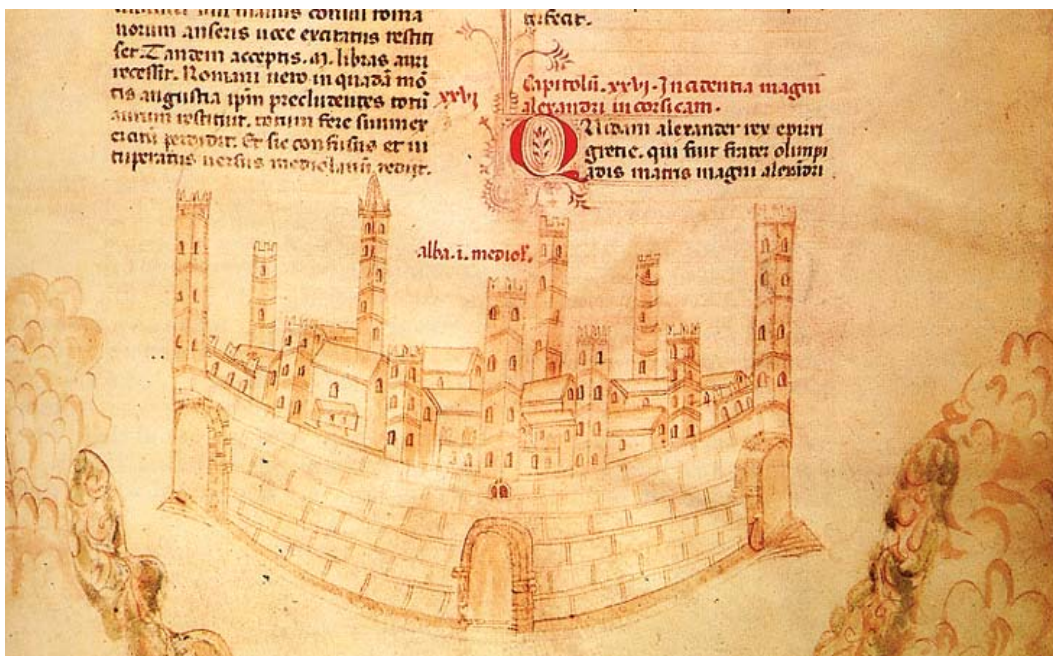 manius consul roma
norum anseris uoce excitatus restiti
set. Tandem acceptis .M. libras auri
recessit. Romani uero in quadā mō
tis angustia ipm precludentes totū
aurum restituit. totum fere suum ex
ercitū perdidit. Et sic confusus et ui
tuperatus uersus mediolanū redijt.
xxvi
Capitolū .xxvi. Incidentia magni
alexandri in corsicam.
Quidam alexander rex epiri
gretie. qui fuit frater olimpi
adis matris magni alexādri
alba .i. mediol.